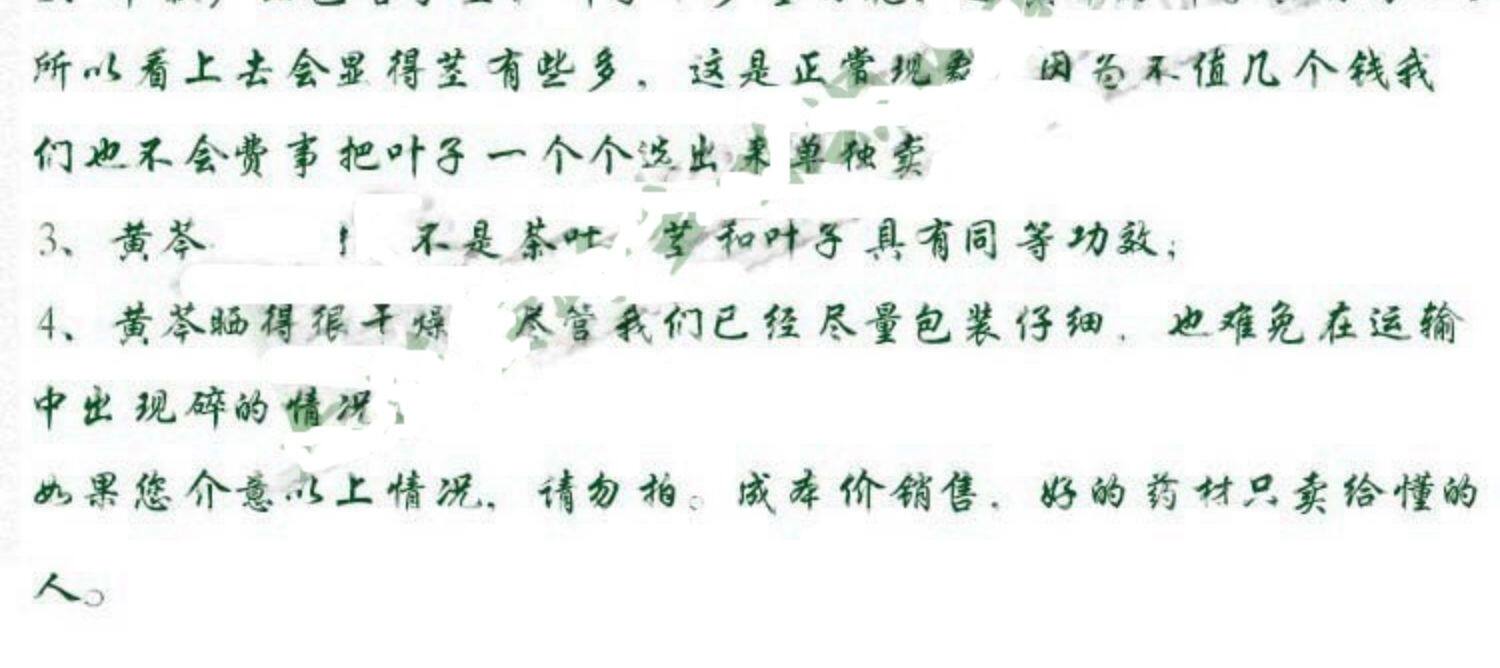 所以看上去会显得茎有些多，这是正常现象 因为不值几个钱我
们也不会费事把叶子一个个选出来单独卖
3、黄芩 ！ 不是茶叶 茎和叶子具有同等功效；
4、黄芩晒得很干燥 尽管我们已经尽量包装仔细，也难免在运输
中出现碎的情况
如果您介意以上情况，请勿拍。成本价销售，好的药材只卖给懂的
人。